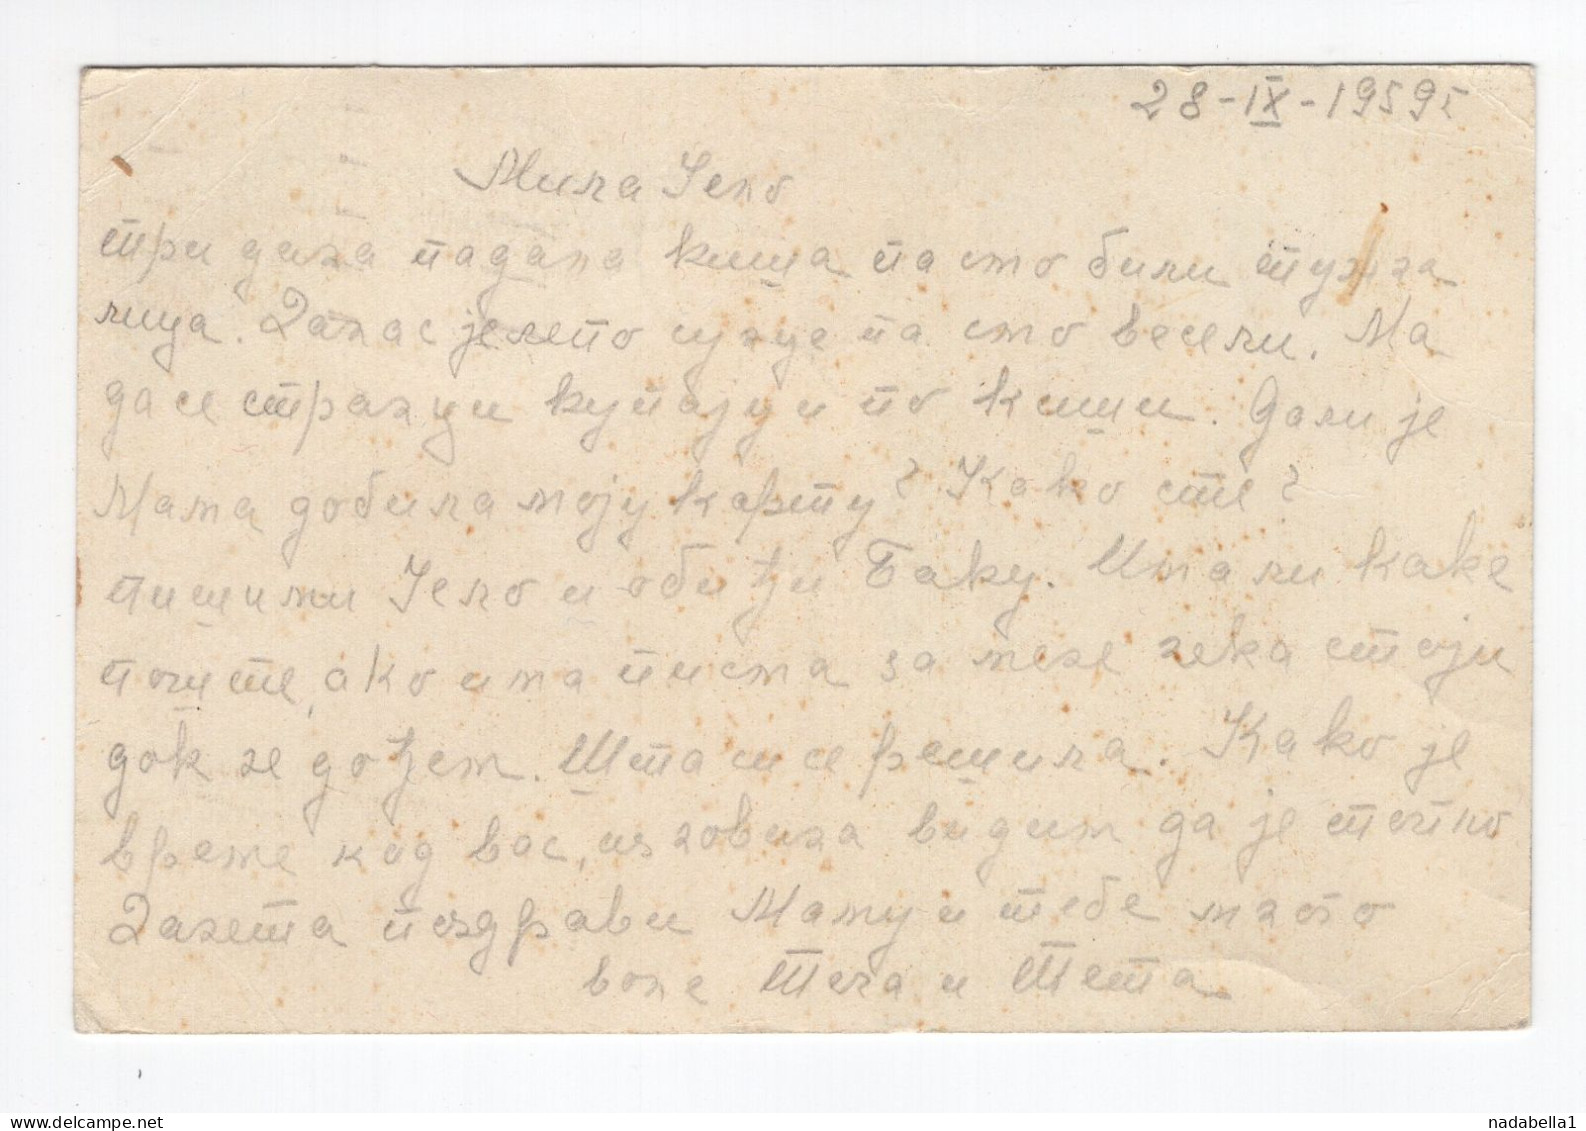 28-IX-1959 г
Мила Јело
три дана падала киша па смо били тужна
лица. Данас је лепо сунце па смо весели. Ма
да се странци купају и по киши. Дали је
Мама добила моју карту? Како сте?
пиши ми Јело и обиђи Баку. Има ли каке
поште, ако има писма за мене нека стоји
док не дођем. Шта си се решила. Како је
време код вас, из новина видим да је топло
Занета поздрави Маму и тебе много
воле Теча и Тета
nadabella1